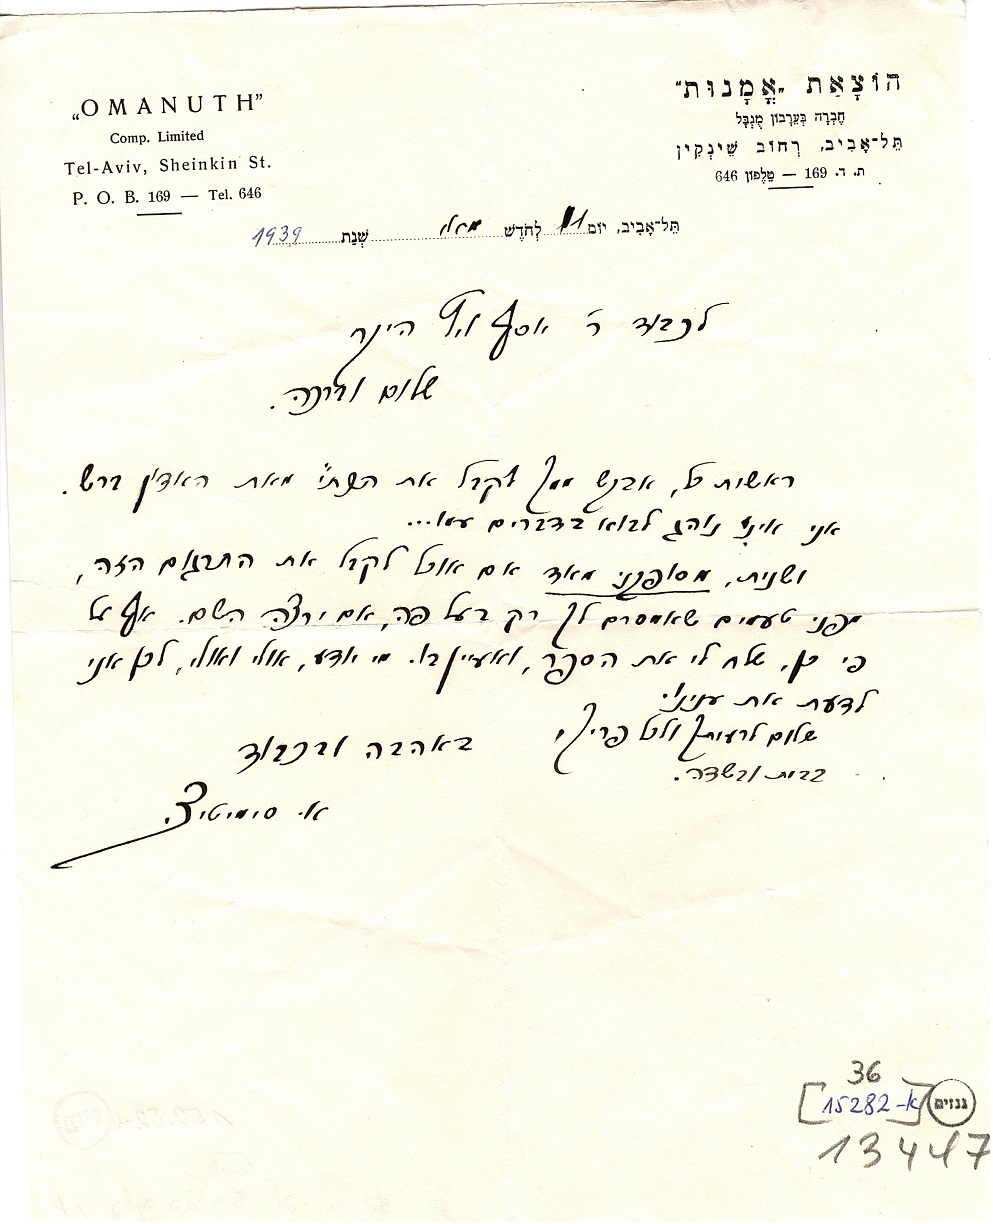 „OMANUTH”
Comp. Limited
Tel-Aviv, Sheinkin St.
P. O. B. 169 — Tel. 646
הוֹצָאַת „אֳמָנוּת“
חֶבְרָה בְּעֵרָבוֹן מֻגְבָּל
תֵּל־אָבִיב, רְחוֹב שֵׁינְקִין
ת. ד. 169 — טֵלֶפוֹן 646
תֵּל־אָבִיב, יוֹם 11 לְחֹדֶשׁ מאי שְׁנַת 1939
לכבוד ר' אסף
שלום וברכה.
ראשית כל, אבקש ממך לקבל את מאת האדון ברש.
אני אינני נוהג לבוא בדברים עמו...
ושנית, מסופקני מאד אם אוכל לקבל את התרגום הזה,
מפני טעמים שאמסרם לך רק בעל פה, אם ירצה השם. אף על
פי כן, שלח לי את הספר, ואעיין בו. מי יודע, אולי ואולי, לכן אני
לדעת את ענינו.
שלום לרעיתך ולכל פריך,
בבית ובשדה.
באהבה ובכבוד
א.
36
[15282-א] גנזים
13447